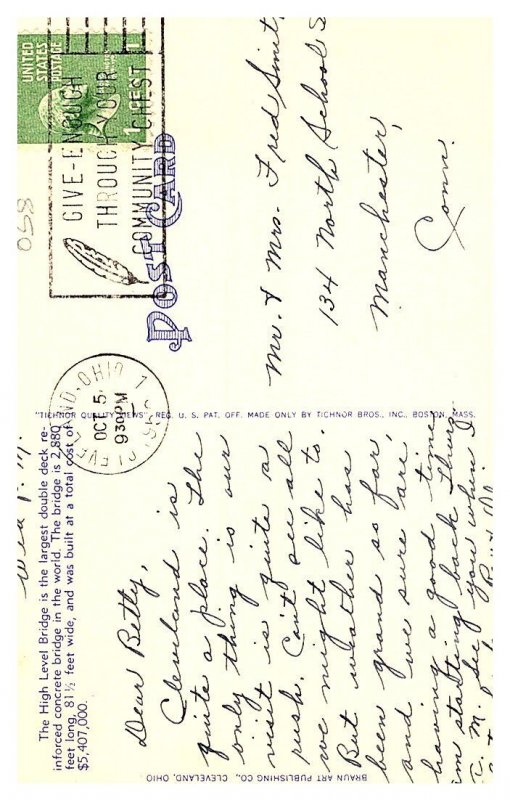 Wed. P.M.
The High Level Bridge is the largest double deck re-
inforced concrete bridge in the world. The bridge is 2,880
feet long, 81½ feet wide, and was built at a total cost of
$5,407,000.
Dear Betty,
Cleveland is
quite a place. The
only thing is our
visit is quite a
rush. Can't see all
we might like to.
But weather has
been grand so far,
and we sure are
having a good time.
im starting back Thurs
see you when I
BRAUN ART PUBLISHING CO., CLEVELAND, OHIO
"TICHNOR QUALITY VIEWS" REG. U. S. PAT. OFF. MADE ONLY BY TICHNOR BROS., INC., BOSTON, MASS.
POST CARD
UNITED
STATES
POSTAGE
1 CENT 1
GIVE-ENOUGH
THROUGH YOUR
COMMUNITY CHEST
CLEVELAND, OHIO 1
OCT 5
930PM
058
Mr. & Mrs. Fred Smit
134 North School S
Manchester,
Conn.